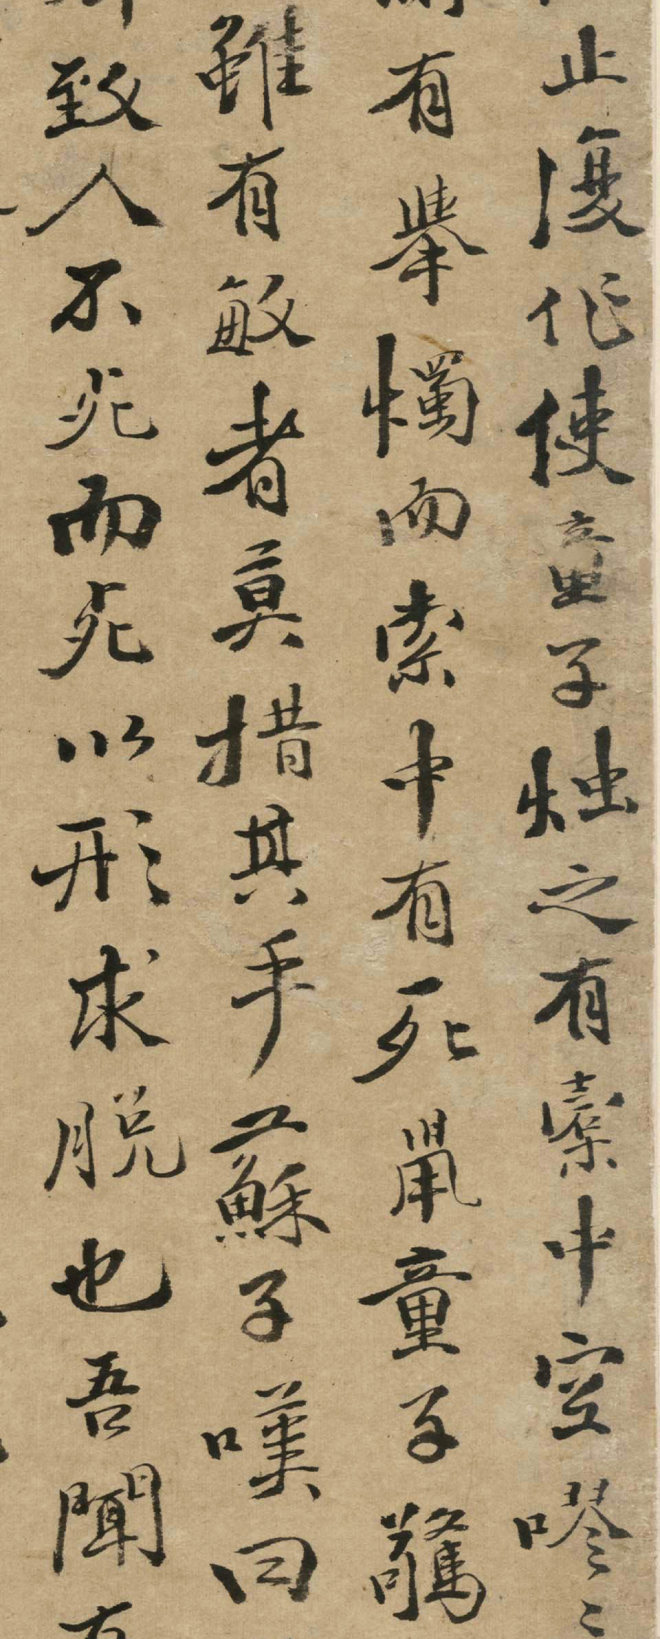 止復作使童子烛之有橐中空嘐〻
有舉燭而索中有死鼠童子驚
雖有敏者莫措其手蘇子嘆曰
致人不死而死以形求脫也吾聞有